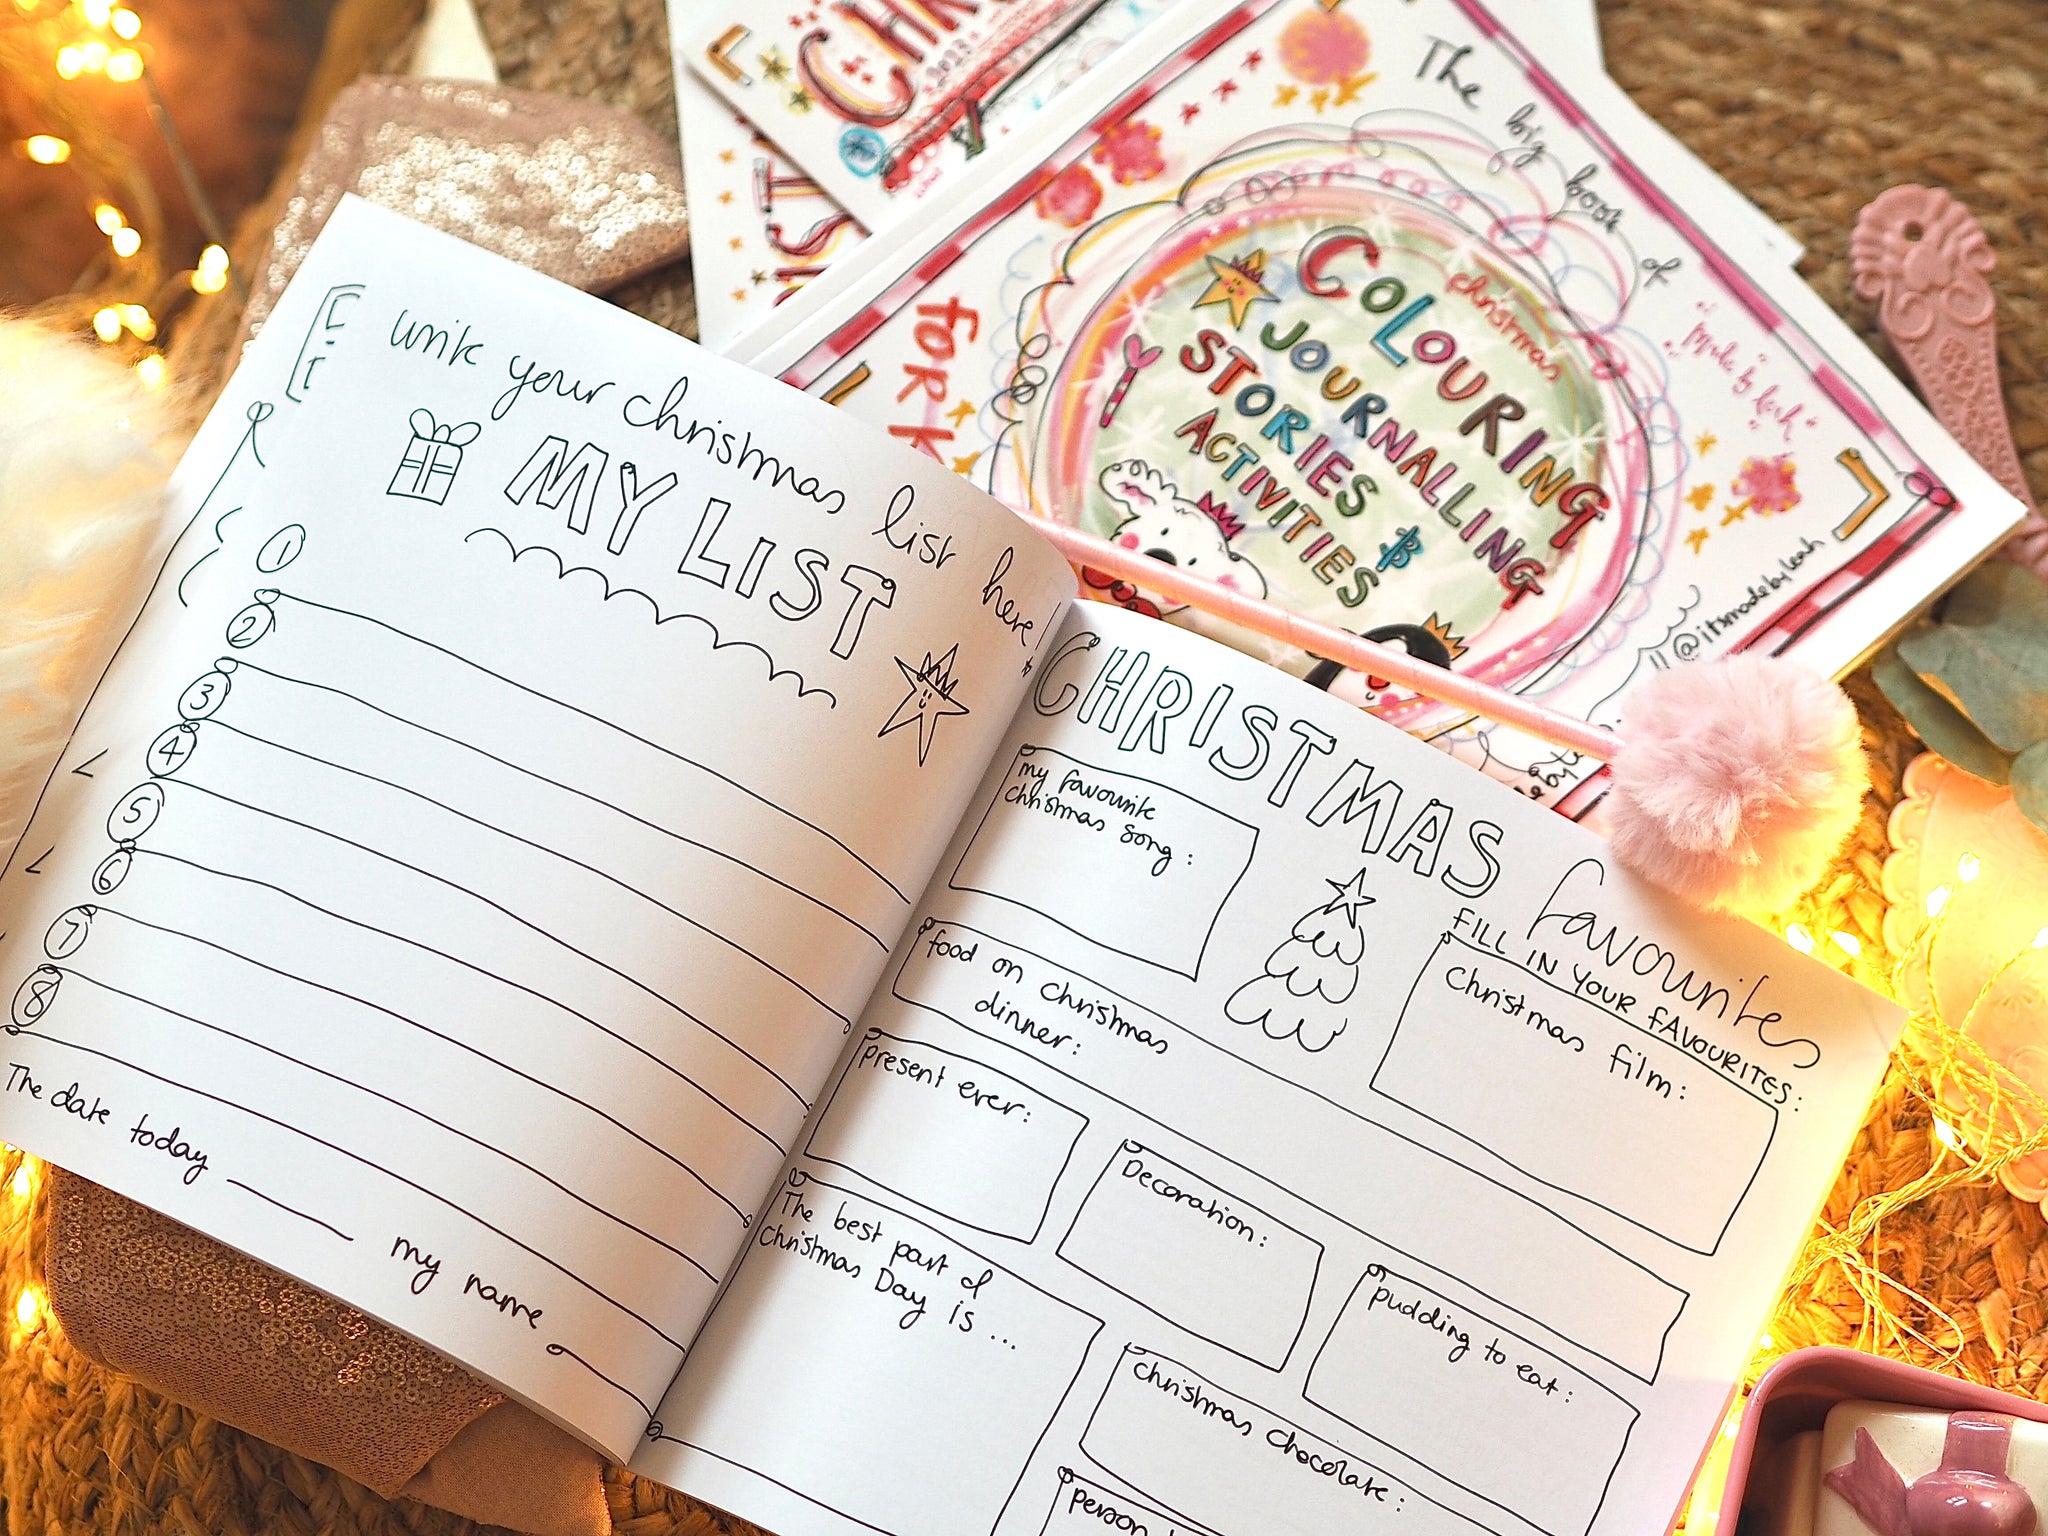 write your christmas list here!
MY LIST
1
2
3
4
5
6
7
8
The date today
my name
CHRISTMAS
favourites
FILL IN YOUR FAVOURITES:
my favourite
christmas song:
Christmas film:
food on christmas
dinner:
present ever:
Decoration:
pudding to eat:
The best part of
Christmas Day is ...
christmas chocolate:
person
The big book of
christmas
COLOURING
JOURNALLING
STORIES &
ACTIVITIES
"made by leah"
@itsmadebyleah
2023